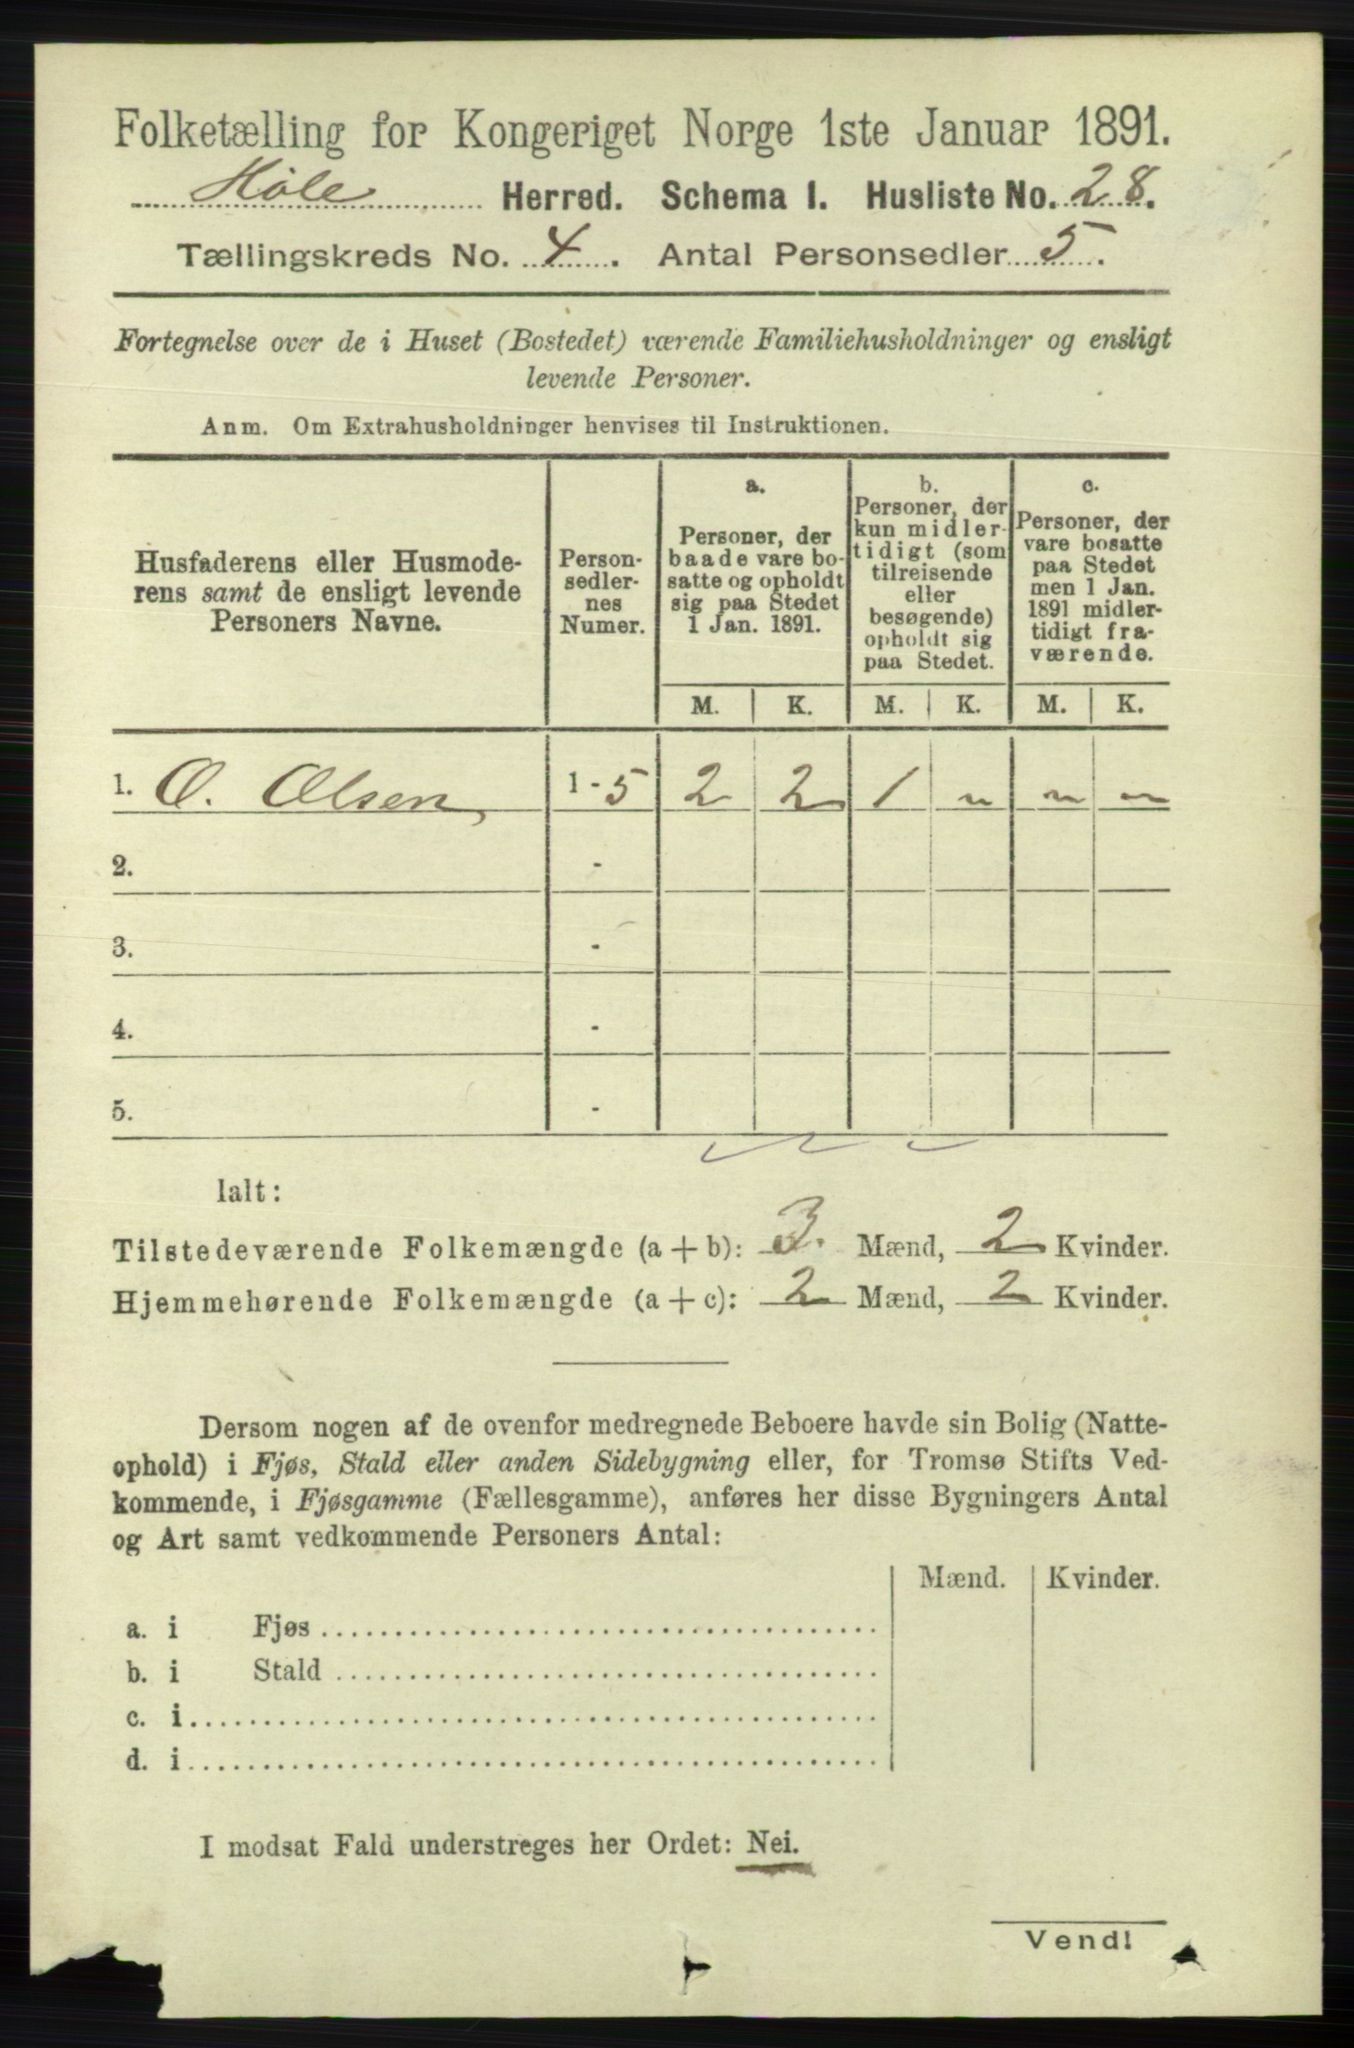 Folketælling for Kongeriget Norge 1ste Januar 1891.
Høle Herred. Schema I. Husliste No. 28.
Tællingskreds No. 4. Antal Personsedler 5.
Fortegnelse over de i Huset (Bostedet) værende Familiehusholdninger og ensligt
levende Personer.
Anm. Om Extrahusholdninger henvises til Instruktionen.
Husfaderens eller Husmode-
rens samt de ensligt levende
Personers Navne.
Person-
sedler-
nes
Numer.
a.
Personer, der
baade vare bo-
satte og opholdt
sig paa Stedet
1 Jan. 1891.
b.
Personer, der
kun midler-
tidigt (som
tilreisende
eller
besøgende)
opholdt sig
paa Stedet.
c.
Personer, der
vare bosatte
paa Stedet
men 1 Jan.
1891 midler-
tidigt fra-
værende.
M. K. M. K. M. K.
1. O. Olsen, 1 - 5 2 2 1 " " "
2. -
3. -
4. -
5. -
Ialt:
Tilstedeværende Folkemængde (a + b): 3. Mænd, 2 Kvinder.
Hjemmehørende Folkemængde (a + c): 2 Mænd, 2 Kvinder.
Dersom nogen af de ovenfor medregnede Beboere havde sin Bolig (Natte-
ophold) i Fjøs, Stald eller anden Sidebygning eller, for Tromsø Stifts Ved-
kommende, i Fjøsgamme (Fællesgamme), anføres her disse Bygningers Antal
og Art samt vedkommende Personers Antal:
Mænd. Kvinder.
a. i Fjøs
b. i Stald
c. i
d. i
I modsat Fald understreges her Ordet: Nei.
Vend!